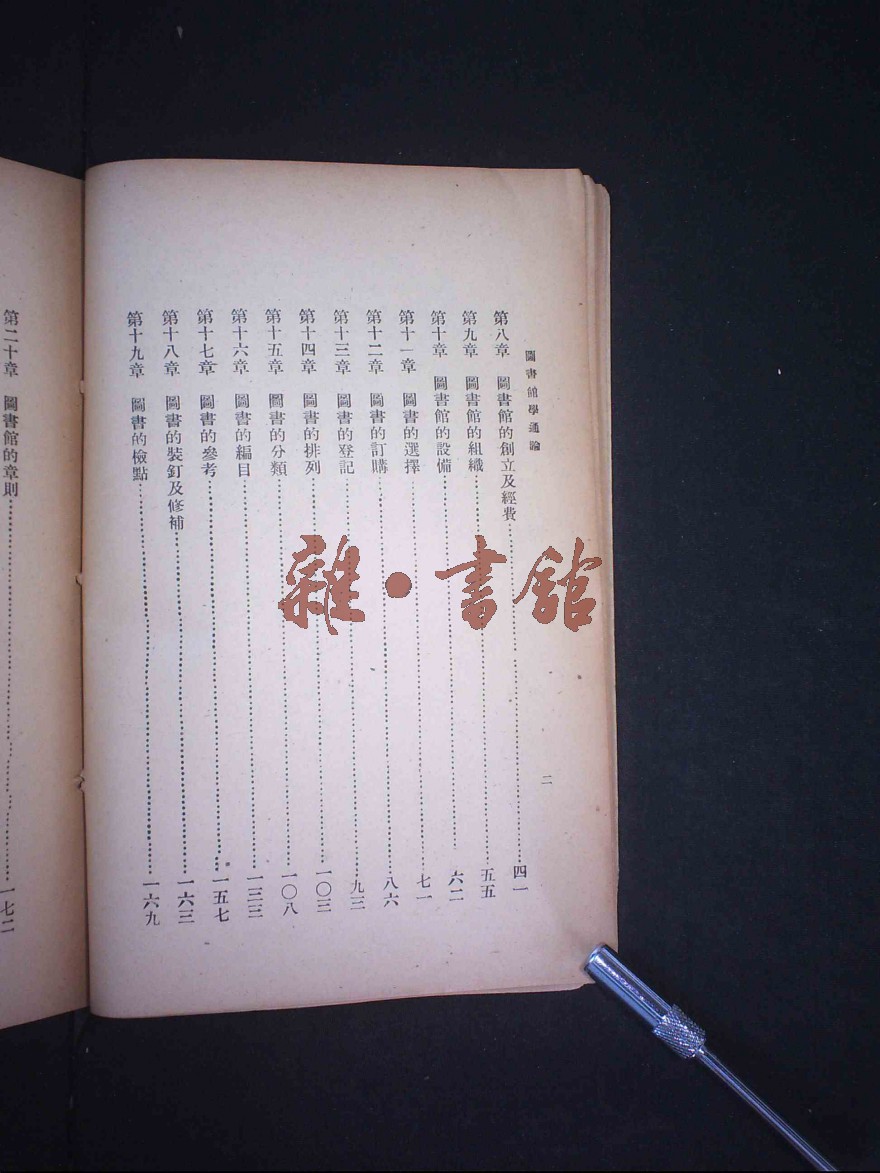 圖書館學通論
二
第八章 圖書館的創立及經費……四一
第九章 圖書館的組織……五五
第十章 圖書館的設備……六二
第十一章 圖書的選擇……七一
第十二章 圖書的訂購……八六
第十三章 圖書的登記……九三
第十四章 圖書的排列……一〇三
第十五章 圖書的分類……一〇八
第十六章 圖書的編目……一三三
第十七章 圖書的參考……一五七
第十八章 圖書的裝釘及修補……一六三
第十九章 圖書的檢點……一六九
第二十章 圖書館的章則……一七二
雜·書館